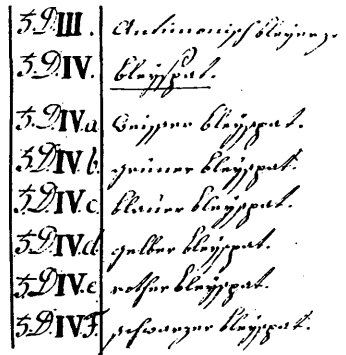 5.D.III. Antimonisch bleyerz
5.D.IV. bleyspat.
5.D.IV.a weisser bleyspat.
5.D.IV.b. grüner bleyspat.
5.D.IV.c. blauer bleyspat.
5.D.IV.d. gelber bleyspat.
5.D.IV.e rother bleyspat.
5.D.IV.F. schwarzer bleyspat.